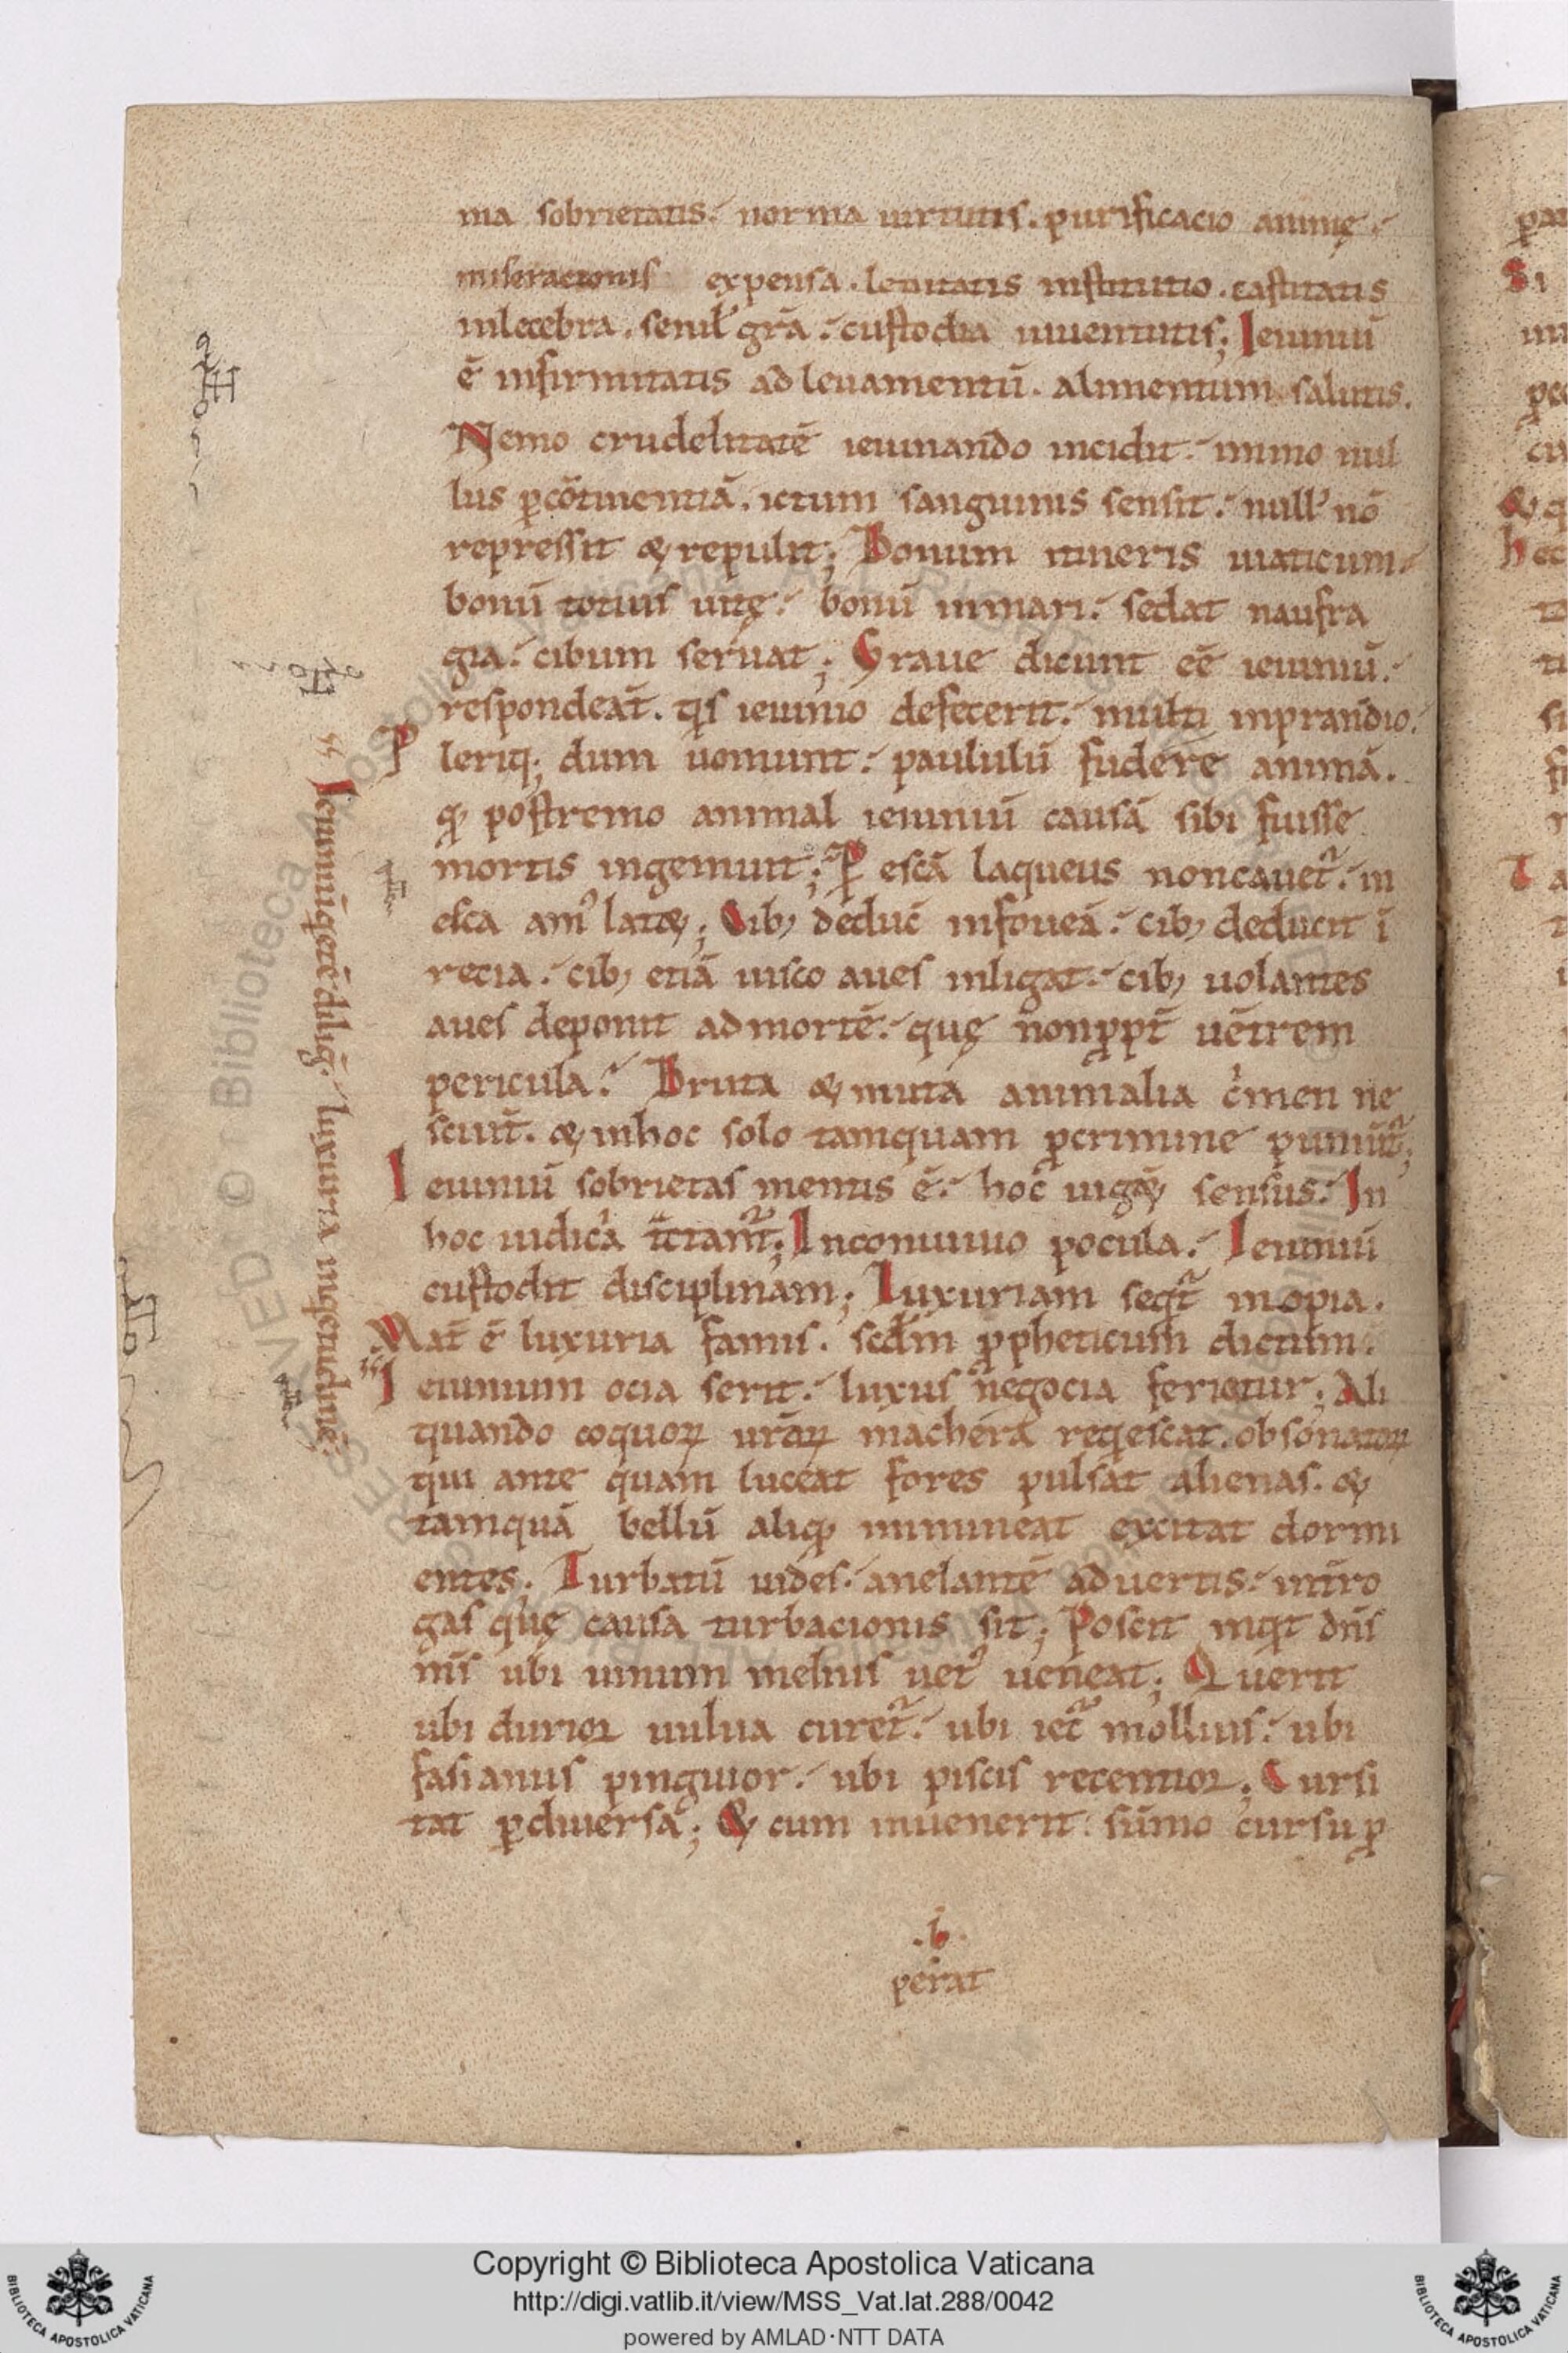 ma sobrietatis. norma uirtutis. purificacio animę.
miseracionis expensa. lenitatis institutio. castitatis
inlecebra. senil' grā. custodia iuuentutis; Ieiuniū
ē infirmitatis ad leuamentū. alimentum salutis.
Nemo crudelitatē ieiunando incidit. immo nul
lus ꝑcōtinentiā. ictum sanguinis sensit. null' nō
repressit & repulit; Bonum itineris uiaticum.
bonū totius uitę. bonū inmari. sedat naufra
gia. cibum seruat; Graue dicunt eē ieiuniū.
respondeāt. qis ieiunio defecerit. multi inprandio.
Pleriq; dum uomunt. paululū fudere animā.
qđ postremo animal ieiuniū causā sibi fuisse
mortis ingemuit; P̱ escā laqueus noncauet᷑. in
esca am' lat&; Cib; deduc̄ infoueā. cib; deducit ī
recia. cib; etiā uisco aues inligat. cib; uolantes
aues deponit admortē. quę nonꝓpt̄ uētrem
pericula. Bruta & muta animalia c'men ne
sciūt. & inhoc solo tamquam ꝑcrimine puniūt᷑;
Ieiuniū sobrietas mentis ē. hoc uig& sensus. In
hoc uidica t̄ctam᷑; Inconuiuio pocula. Ieiuniū
custodit disciplinam; Luxuriam seqt᷑ inopia.
Mat̄ ē luxuria famis. scdm ꝓpheticum dictum.
Ieiunium ocia serit. luxus negocia feriatur; Ali
quando coquoꝝ urāꝝ machera reqescat. obsonatoꝝ
qui ante quam luceat fores pulsat alienas. &
tamquā bellū aliqđ immineat excitat dormi
entes; Turbatū uides. anelantē aduertis. int̄ro
gas quę causa turbacionis sit; Poscit inqt dn̄s
m̄s ubi uinum melius uet' ueneat; Querit
ubi durior uulua curet᷑. ubi iec᷑ mollius. ubi
fasianus pinguior. ubi piscis recentior; Cursi
tat ꝑdiuersa; & cum inuenerit sūmo cursu ꝑ
.b.
perat
Ieiuniū qetē diligi. luxuria inqetudinē.
Copyright © Biblioteca Apostolica Vaticana
http://digi.vatlib.it/view/MSS_Vat.lat.288/0042
powered by AMLAD·NTT DATA
BIBLIOTECA APOSTOLICA VATICANA
BIBLIOTECA APOSTOLICA VATICANA